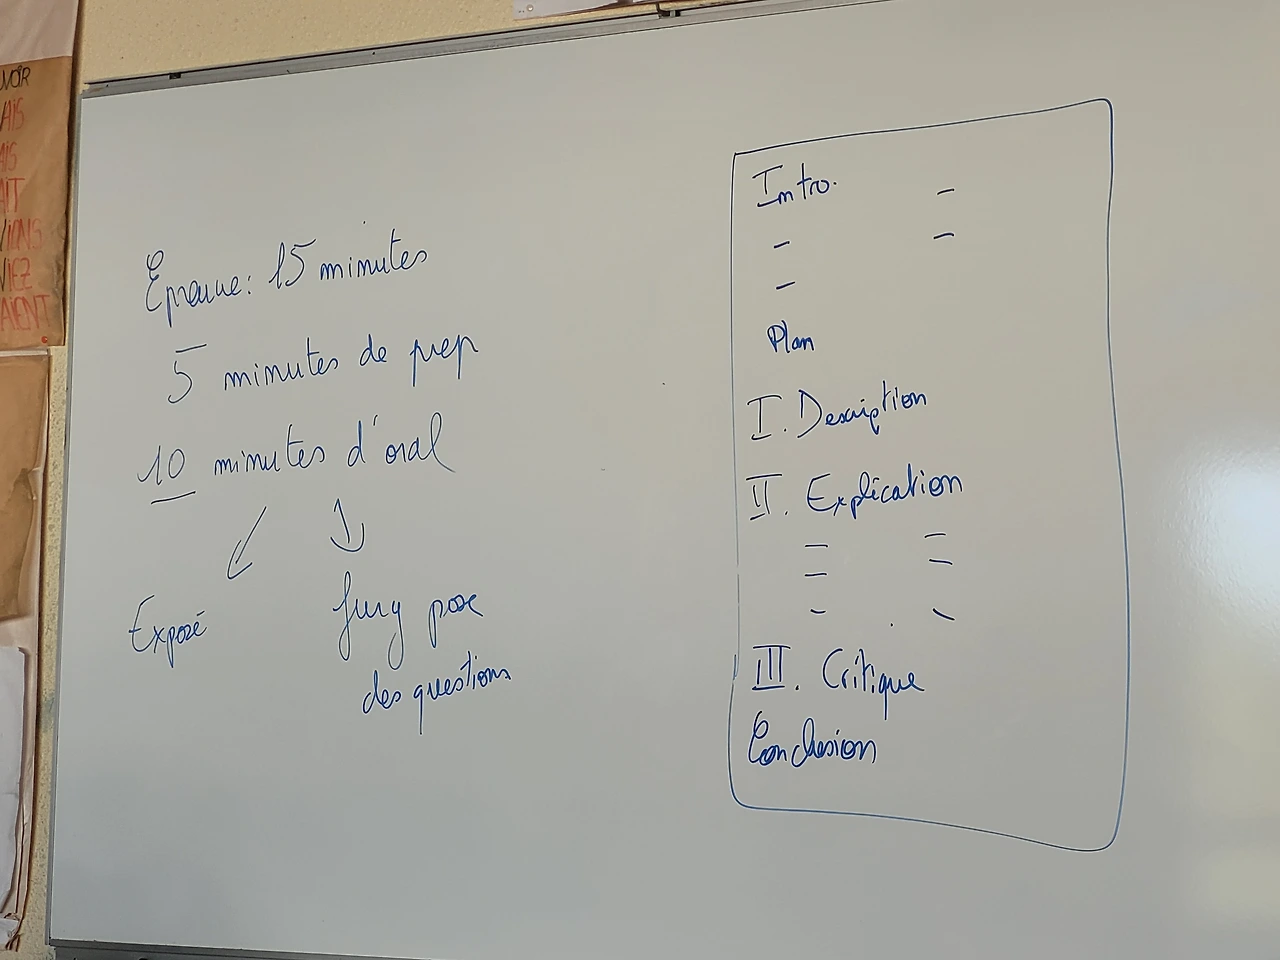 UVOIR
VAIS
AIS
AIT
VIONS
VIEZ
AIENT
Epreuve: 15 minutes
5 minutes de prep
10 minutes d'oral
Exposé
Jury pose
des questions
Intro.
-
-
-
-
Plan
I. Description
II. Explication
- -
- -
- -
III. Critique
Conclusion